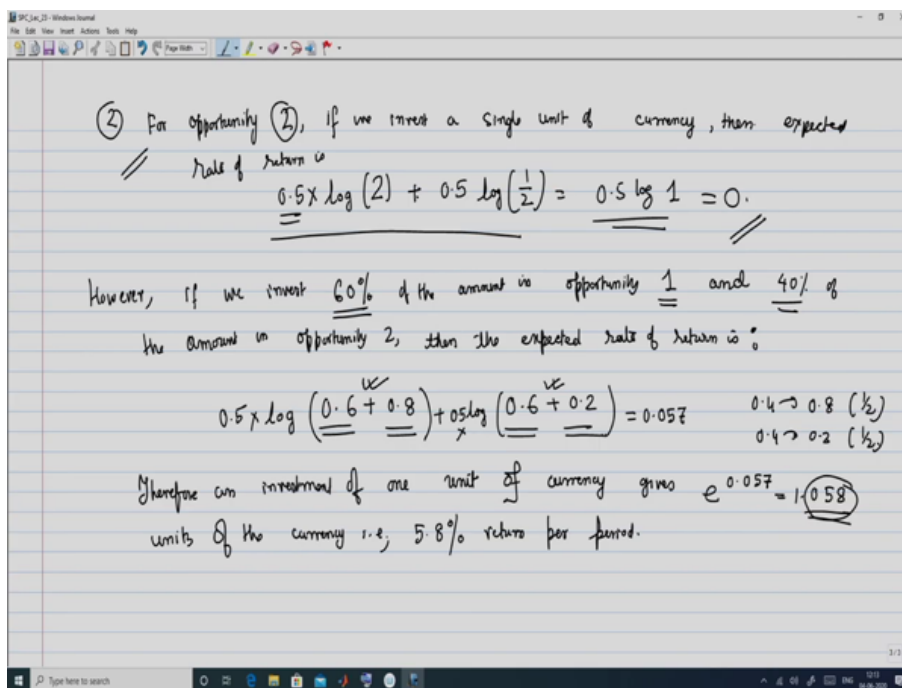 SPC_Lec_23 - Windows Journal
File Edit View Insert Actions Tools Help
Page Width
② For opportunity ②, if we invest a single unit of currency, then expected
rate of return is
0.5 x log (2) + 0.5 log (1/2) = 0.5 log 1 = 0.
However, if we invest 60% of the amount in opportunity 1 and 40% of
the amount in opportunity 2, then the expected rate of return is:
0.5 x log (0.6 + 0.8) + 0.5 x log (0.6 + 0.2) = 0.057
0.4 → 0.8 (1/2)
0.4 → 0.2 (1/2)
Therefore an investment of one unit of currency gives e^0.057 = 1.058
units of the currency i.e, 5.8% return per period.
3/3
Type here to search
ENG
12:13
04-06-2020